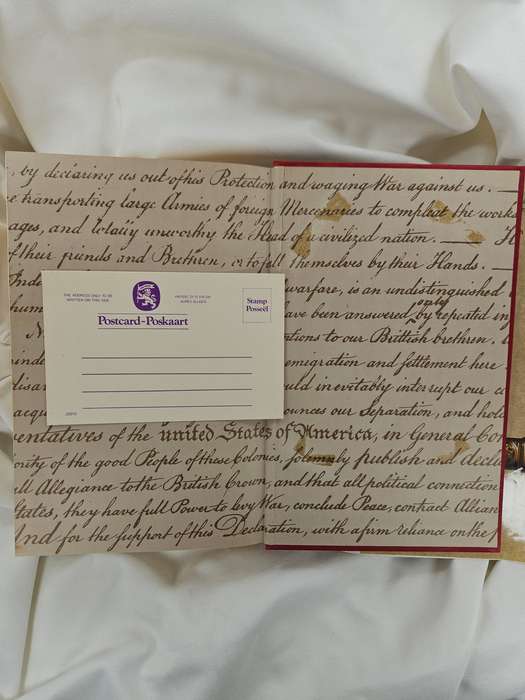 by declaring us out of his Protection and waging War against us.
transporting large Armies of foreign Mercenaries to compleat the works
ages, and totally unworthy the Head of a civilized nation. H
f their friends and Brethren, or to fall themselves by their Hands.
warfare, is an undistinguished
only
have been answered by repeated in
tions to our Brittish brethren.
emigration and settlement here
uld inevitably interrupt our co
acqu
ounces our Separation, and hold
entatives of the united States of America, in General Con
ority of the good People of these Colonies, solemnly publish and decla
all Allegiance to the British Crown, and that all political connection
States, they have full Power to levy War, conclude Peace, contract Allian
And for the support of this Declaration, with a firm reliance on the p
THE ADDRESS ONLY TO BE
WRITTEN ON THIS SIDE
Postcard-Poskaart
Stamp
Posseël